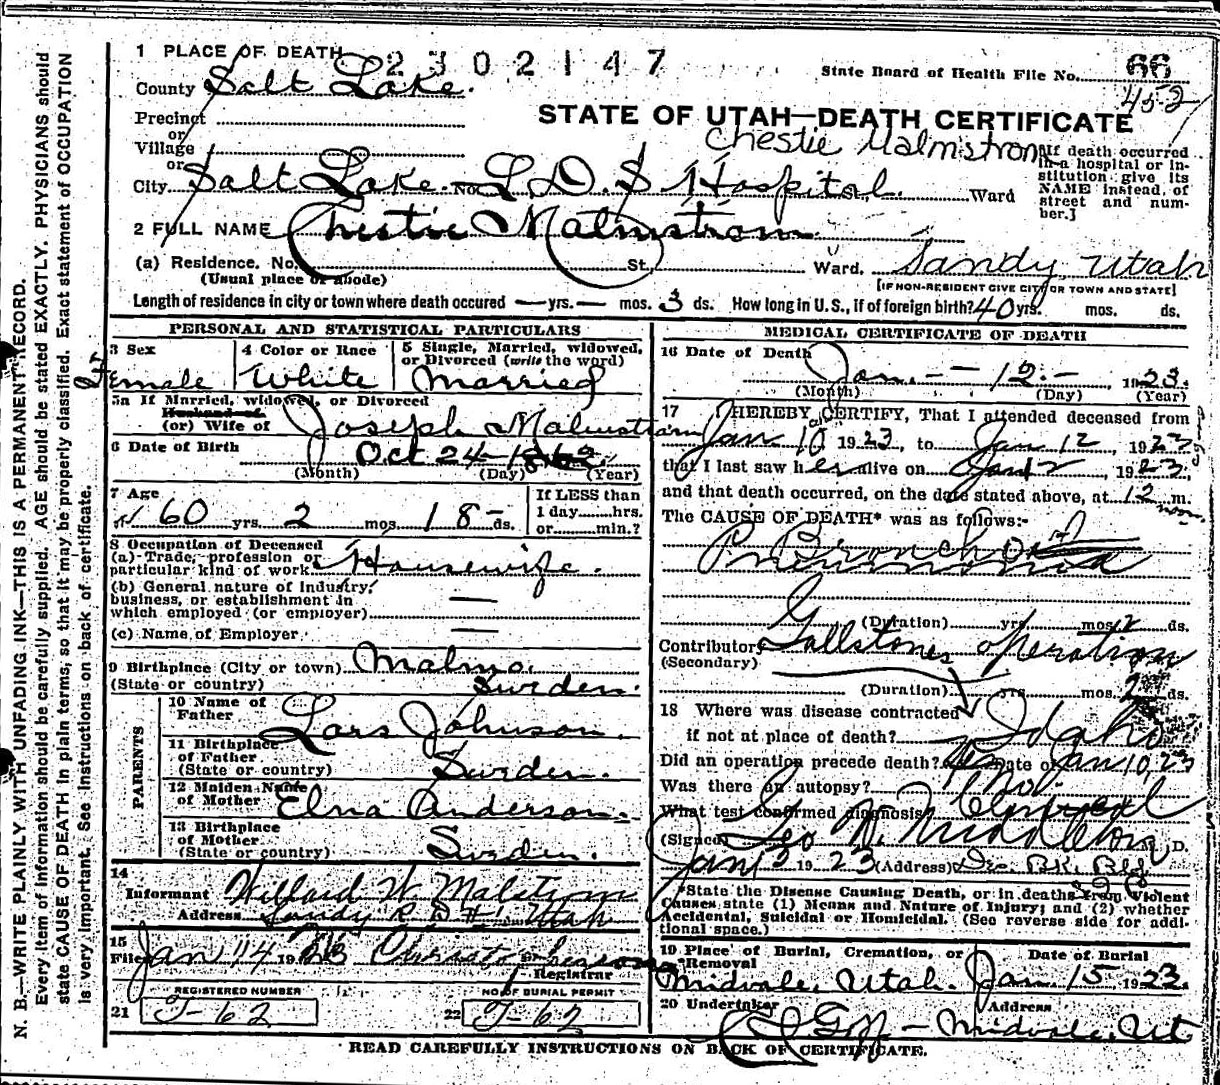 1 PLACE OF DEATH
2302147
State Board of Health File No. 66
452
County Salt Lake.
STATE OF UTAH—DEATH CERTIFICATE
Precinct
or
Village
or
Chestie Malmstrom
[If death occurred in a hospital or institution give its NAME instead of street and number.]
City Salt Lake. No. L.D.S Hospital St., Ward
2 FULL NAME Chestie Malmstrom
(a) Residence. No. St. Ward. Sandy Utah
(Usual place of abode)
[IF NON-RESIDENT GIVE CITY OR TOWN AND STATE]
Length of residence in city or town where death occured — yrs. — mos. 3 ds. How long in U.S., if of foreign birth? 40 yrs. mos. ds.
PERSONAL AND STATISTICAL PARTICULARS
3 Sex
Female
4 Color or Race
White
5 Single, Married, widowed, or Divorced (write the word)
Married
5a If Married, widowed, or Divorced
Husband of
(or) Wife of Joseph Malmstrom
6 Date of Birth Oct 24-1862
(Month) (Day) (Year)
7 Age
60 yrs. 2 mos. 18 ds.
If LESS than
1 day hrs.
or min.?
8 Occupation of Deceased
(a) Trade, profession or
particular kind of work Housewife.
(b) General nature of industry,
business, or establishment in
which employed (or employer) —
(c) Name of Employer —
9 Birthplace (City or town) Malmo.
(State or country) Sweden.
PARENTS
10 Name of
Father Lars Johnson.
11 Birthplace
of Father
(State or country) Sweden.
12 Maiden Name
of Mother Elna Anderson.
13 Birthplace
of Mother
(State or country) Sweden.
14
Informant Willard W. Malstrom
Address Sandy R.D. Utah
15
Filed Jan 14 1923
Registrar
REGISTERED NUMBER
21 J-62
NO. OF BURIAL PERMIT
22 J-62
MEDICAL CERTIFICATE OF DEATH
16 Date of Death
Jan. - - 12 - , 1923.
(Month) (Day) (Year)
17 I HEREBY CERTIFY, That I attended deceased from
Jan 10 1923, to Jan 12, 1923
that I last saw her alive on Jan 12 1923,
and that death occurred, on the date stated above, at 12 m.
noon
The CAUSE OF DEATH* was as follows:-
Broncho
Pneumonia
(Duration) yrs. mos. 2 ds.
Contributory Gallstones operation
(Secondary)
(Duration) yrs. mos. 2 ds.
18 Where was disease contracted
if not at place of death? Idaho
Did an operation precede death? Yes Date of Jan 10, 23
Was there an autopsy? No.
What test confirmed diagnosis? Clinical
(Signed) Geo W. Middleton M. D.
Jan 13 1923 (Address) Des. Bk. Bldg
S L C
*State the Disease Causing Death, or in deaths from Violent
Causes state (1) Means and Nature of Injury; and (2) whether
Accidental, Suicidal or Homicidal. (See reverse side for additional space.)
19 Place of Burial, Cremation, or
Removal
Midvale, Utah.
Date of Burial
Jan. 15, 1923.
20 Undertaker
Goff -
Address
Midvale, Ut
READ CAREFULLY INSTRUCTIONS ON BACK OF CERTIFICATE.
N. B.—WRITE PLAINLY WITH UNFADING INK—THIS IS A PERMANENT RECORD.
Every item of information should be carefully supplied. AGE should be stated EXACTLY. PHYSICIANS should
state CAUSE OF DEATH in plain terms, so that it may be properly classified. Exact statement of OCCUPATION
is very important. See instructions on back of certificate.